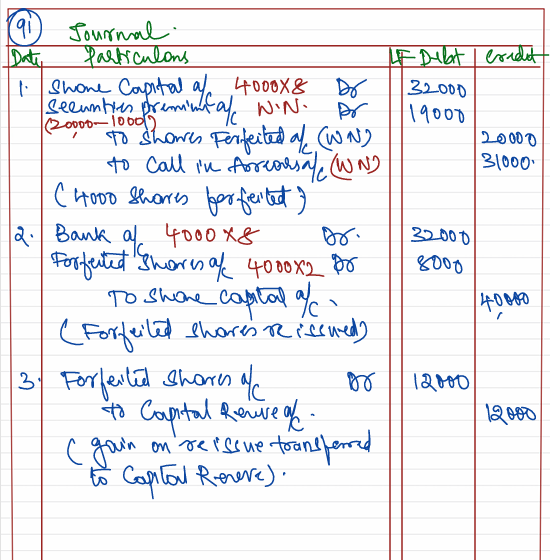 91 Journal.
Date Particulars LF Debt Credit
1. Share Capital a/c 4000X8 Dr 32000
Securities premium a/c W.N. Dr 19000
(20000-1000)
To Shares Forfeited a/c (WN) 20000
to Call in Arrears a/c (WN) 31000.
(4000 Shares forfeited)
2. Bank a/c 4000X8 Dr. 32000
Forfeited Shares a/c 4000X2 Dr 8000
To Share Capital a/c. 40000
(Forfeited shares re issued)
3. Forfeited Shares a/c Dr 12000
to Capital Rerve a/c. 12000
(gain on re issue transferred
to Capital Rerere).